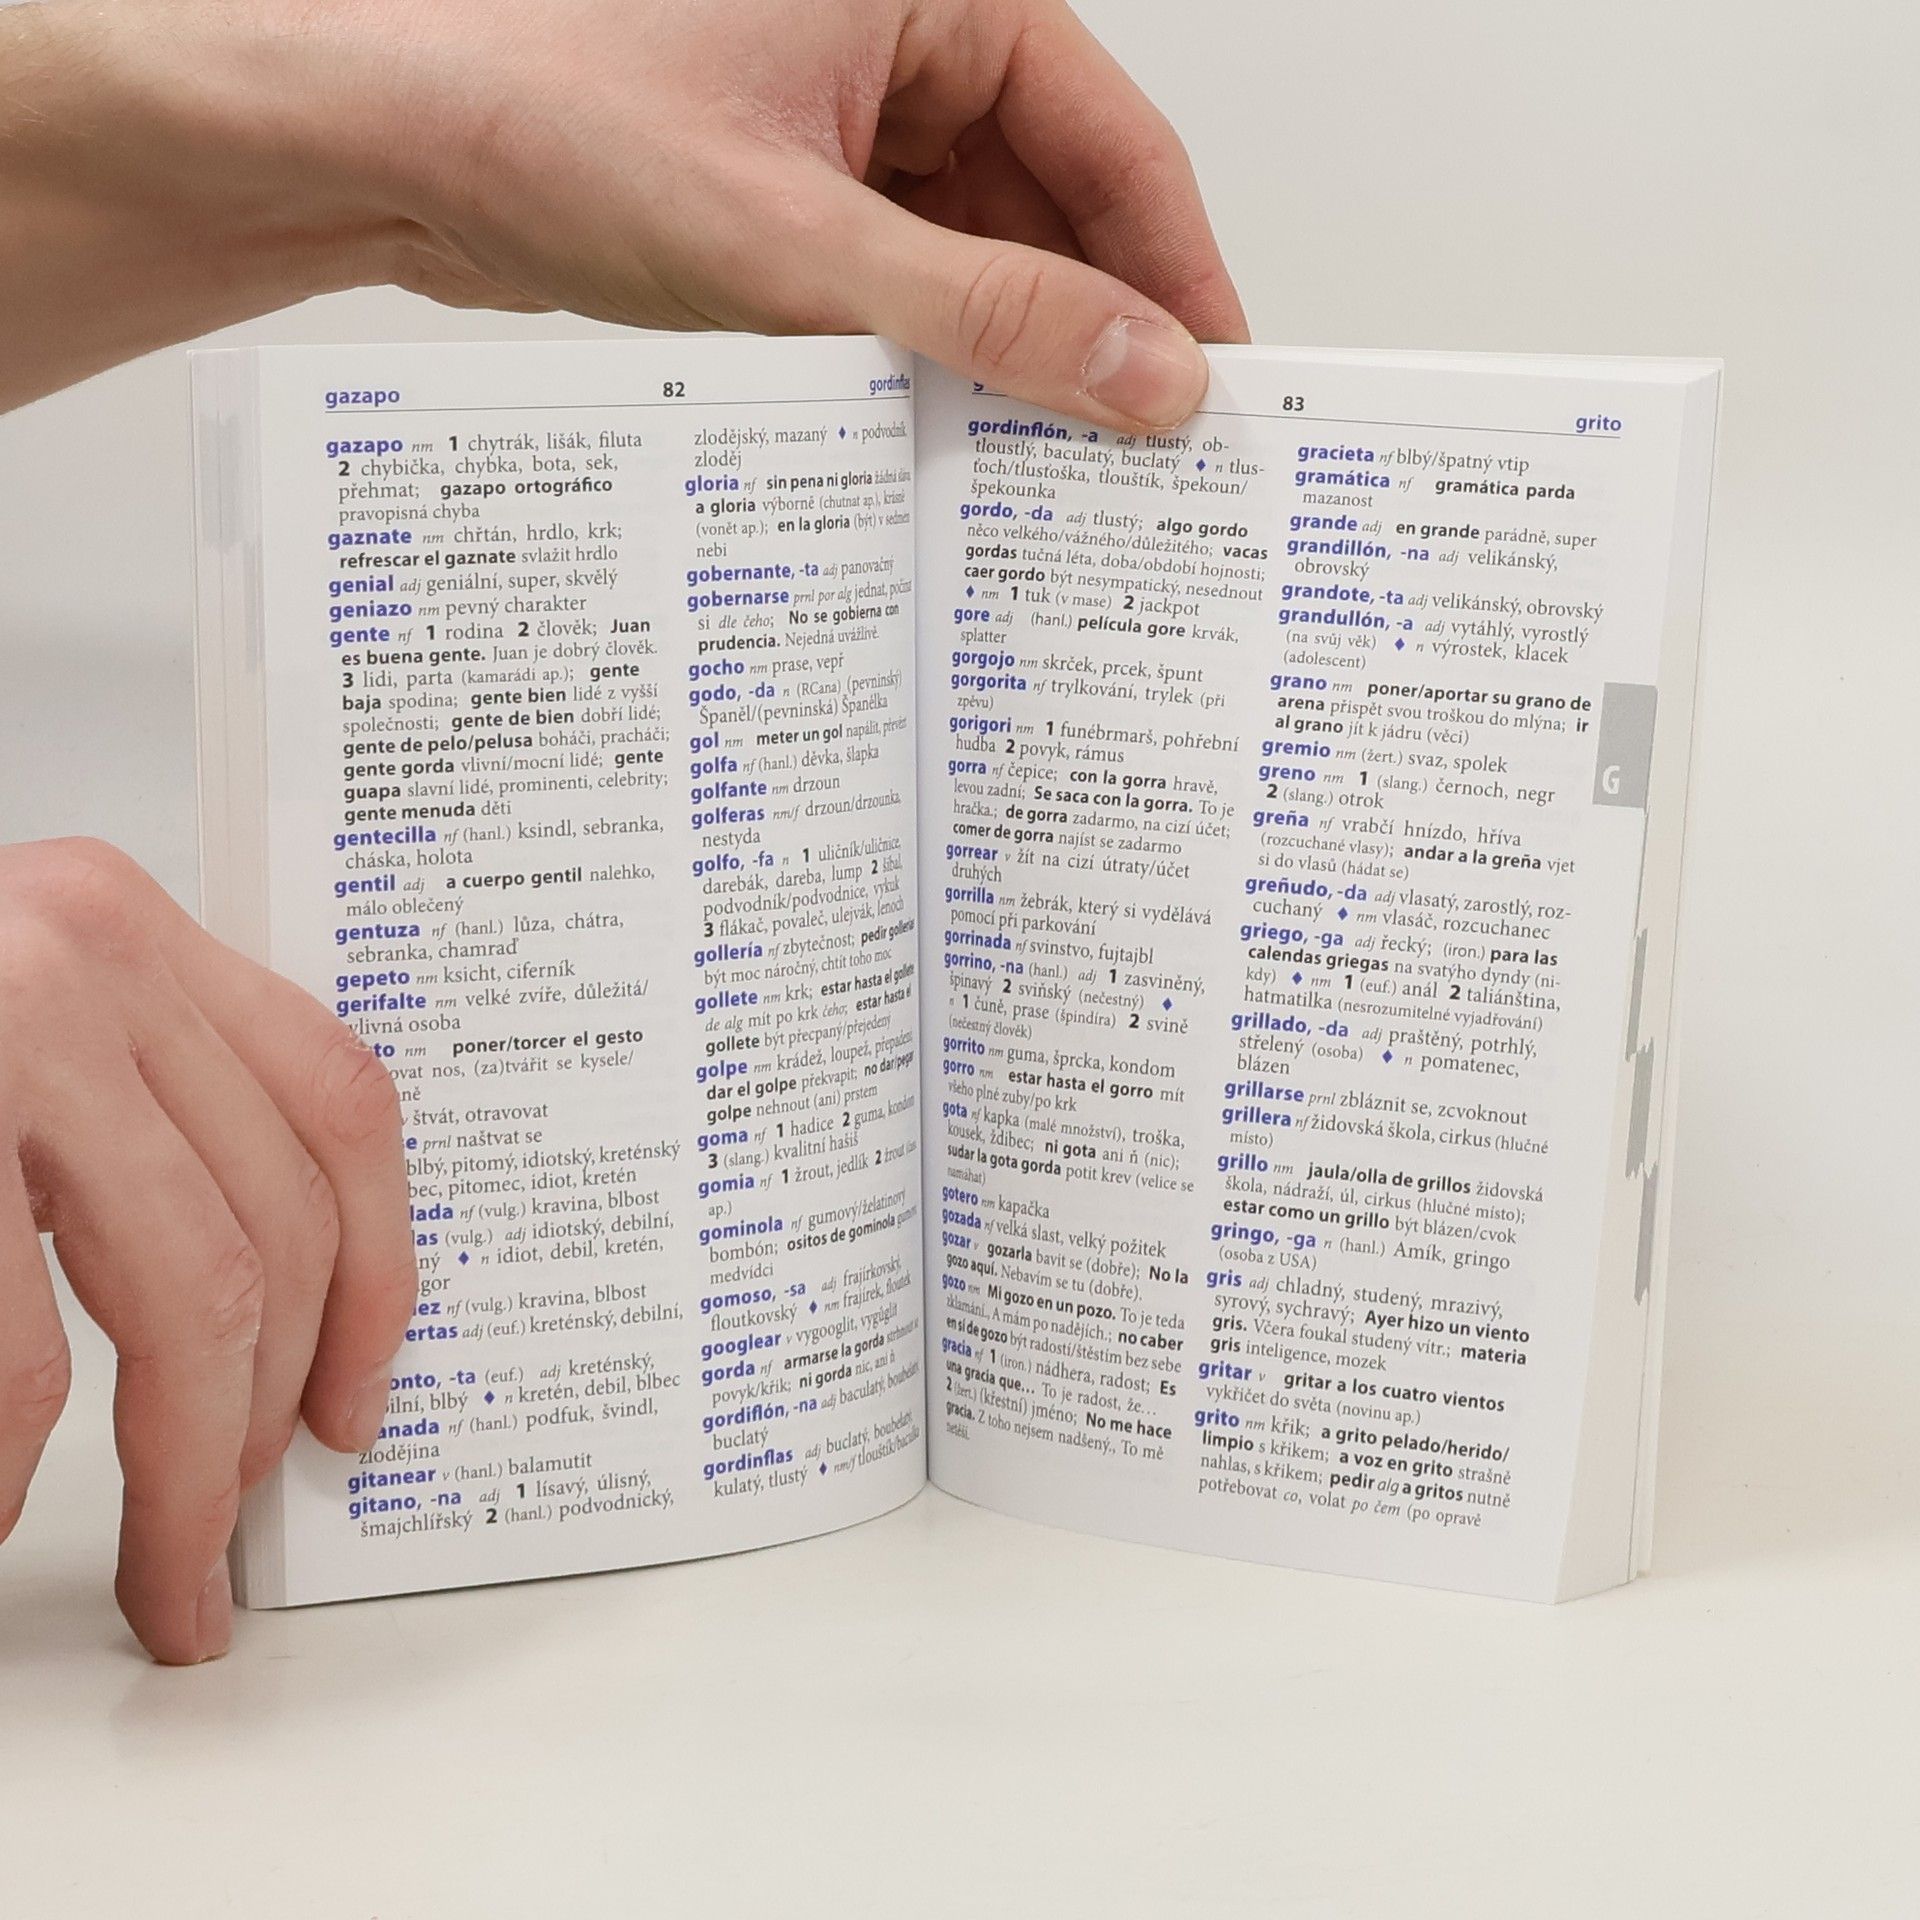 gazapo 82 gordinflas
gazapo nm 1 chytrák, lišák, filuta
2 chybička, chybka, bota, sek,
přehmat; gazapo ortográfico
pravopisná chyba
gaznate nm chřtán, hrdlo, krk;
refrescar el gaznate svlažit hrdlo
genial adj geniální, super, skvělý
geniazo nm pevný charakter
gente nf 1 rodina 2 člověk; Juan
es buena gente. Juan je dobrý člověk.
3 lidi, parta (kamarádi ap.); gente
baja spodina; gente bien lidé z vyšší
společnosti; gente de bien dobří lidé;
gente de pelo/pelusa boháči, pracháči;
gente gorda vlivní/mocní lidé; gente
guapa slavní lidé, prominenti, celebrity;
gente menuda děti
gentecilla nf (hanl.) ksindl, sebranka,
cháska, holota
gentil adj a cuerpo gentil nalehko,
málo oblečený
gentuza nf (hanl.) lůza, chátra,
sebranka, chamraď
gepeto nm ksicht, ciferník
gerifalte nm velké zvíře, důležitá/
vlivná osoba
to nm poner/torcer el gesto
ovat nos, (za)tvářit se kysele/
ně
v štvát, otravovat
e prnl naštvat se
blbý, pitomý, idiotský, kreténský
bec, pitomec, idiot, kretén
lada nf (vulg.) kravina, blbost
las (vulg.) adj idiotský, debilní,
ný ♦ n idiot, debil, kretén,
gor
ez nf (vulg.) kravina, blbost
ertas adj (euf.) kreténský, debilní,
onto, -ta (euf.) adj kreténský,
ilní, blbý ♦ n kretén, debil, blbec
anada nf (hanl.) podfuk, švindl,
zlodějina
gitanear v (hanl.) balamutit
gitano, -na adj 1 lísavý, úlisný,
šmajchlířský 2 (hanl.) podvodnický,
zlodějský, mazaný ♦ n podvodník,
zloděj
gloria nf sin pena ni gloria žádná sláva
a gloria výborně (chutnat ap.), krásně
(vonět ap.); en la gloria (být) v sedmém
nebi
gobernante, -ta adj panovačný
gobernarse prnl por alg jednat, počínat
si dle čeho; No se gobierna con
prudencia. Nejedná uvážlivě.
gocho nm prase, vepř
godo, -da n (RCana) (pevninský)
Španěl/(pevninská) Španělka
gol nm meter un gol napálit, převézt
golfa nf (hanl.) děvka, šlapka
golfante nm drzoun
golferas nm/f drzoun/drzounka,
nestyda
golfo, -fa n 1 uličník/uličnice,
darebák, dareba, lump 2 šibal,
podvodník/podvodnice, vykuk
3 flákač, povaleč, ulejvák, lenoch
gollería nf zbytečnost; pedir gollerías
být moc náročný, chtít toho moc
gollete nm krk; estar hasta el gollete
de alg mít po krk čeho; estar hasta el
gollete být přecpaný/přejedený
golpe nm krádež, loupež, přepadení;
dar el golpe překvapit; no dar/pegar
golpe nehnout (ani) prstem
goma nf 1 hadice 2 guma, kondom
3 (slang.) kvalitní hašiš
gomia nf 1 žrout, jedlík 2 žrout (času
ap.)
gominola nf gumový/želatinový
bombón; ositos de gominola gumoví
medvídci
gomoso, -sa adj frajírkovský,
floutkovský ♦ nm frajírek, floutek
googlear v vygooglit, vygůglit
gorda nf armarse la gorda strhnout se
povyk/křik; ni gorda nic, ani ň
gordiflón, -na adj baculatý, boubelatý,
buclatý
gordinflas adj buclatý, boubelatý,
kulatý, tlustý ♦ nm/f tlouštík/baculka
83 grito
gordinflón, -a adj tlustý, ob-
tloustlý, baculatý, buclatý ♦ n tlus-
ťoch/tlusťoška, tlouštík, špekoun/
špekounka
gordo, -da adj tlustý; algo gordo
něco velkého/vážného/důležitého; vacas
gordas tučná léta, doba/období hojnosti;
caer gordo být nesympatický, nesednout
♦ nm 1 tuk (v mase) 2 jackpot
gore adj (hanl.) película gore krvák,
splatter
gorgojo nm skrček, prcek, špunt
gorgorita nf trylkování, trylek (při
zpěvu)
gorigori nm 1 funébrmarš, pohřební
hudba 2 povyk, rámus
gorra nf čepice; con la gorra hravě,
levou zadní; Se saca con la gorra. To je
hračka.; de gorra zadarmo, na cizí účet;
comer de gorra najíst se zadarmo
gorrear v žít na cizí útraty/účet
druhých
gorrilla nm žebrák, který si vydělává
pomocí při parkování
gorrinada nf svinstvo, fujtajbl
gorrino, -na (hanl.) adj 1 zasviněný,
špinavý 2 sviňský (nečestný) ♦
n 1 čuně, prase (špindíra) 2 svině
(nečestný člověk)
gorrito nm guma, šprcka, kondom
gorro nm estar hasta el gorro mít
všeho plné zuby/po krk
gota nf kapka (malé množství), troška,
kousek, ždibec; ni gota ani ň (nic);
sudar la gota gorda potit krev (velice se
namáhat)
gotero nm kapačka
gozada nf velká slast, velký požitek
gozar v gozarla bavit se (dobře); No la
gozo aquí. Nebavím se tu (dobře).
gozo nm Mi gozo en un pozo. To je teda
zklamání., A mám po nadějích.; no caber
en sí de gozo být radostí/štěstím bez sebe
gracia nf 1 (iron.) nádhera, radost; Es
una gracia que... To je radost, že…
2 (žert.) (křestní) jméno; No me hace
gracia. Z toho nejsem nadšený., To mě
netěší.
gracieta nf blbý/špatný vtip
gramática nf gramática parda
mazanost
grande adj en grande parádně, super
grandillón, -na adj velikánský,
obrovský
grandote, -ta adj velikánský, obrovský
grandullón, -a adj vytáhlý, vyrostlý
(na svůj věk) ♦ n výrostek, klacek
(adolescent)
grano nm poner/aportar su grano de
arena přispět svou troškou do mlýna; ir
al grano jít k jádru (věci)
gremio nm (žert.) svaz, spolek
greno nm 1 (slang.) černoch, negr
2 (slang.) otrok
greña nf vrabčí hnízdo, hříva
(rozcuchané vlasy); andar a la greña vjet
si do vlasů (hádat se)
greñudo, -da adj vlasatý, zarostlý, roz-
cuchaný ♦ nm vlasáč, rozcuchanec
griego, -ga adj řecký; (iron.) para las
calendas griegas na svatýho dyndy (ni-
kdy) ♦ nm 1 (euf.) anál 2 taliánština,
hatmatilka (nesrozumitelné vyjadřování)
grillado, -da adj praštěný, potrhlý,
střelený (osoba) ♦ n pomatenec,
blázen
grillarse prnl zbláznit se, zcvoknout
grillera nf židovská škola, cirkus (hlučné
místo)
grillo nm jaula/olla de grillos židovská
škola, nádraží, úl, cirkus (hlučné místo);
estar como un grillo být blázen/cvok
gringo, -ga n (hanl.) Amík, gringo
(osoba z USA)
gris adj chladný, studený, mrazivý,
syrový, sychravý; Ayer hizo un viento
gris. Včera foukal studený vítr.; materia
gris inteligence, mozek
gritar v gritar a los cuatro vientos
vykřičet do světa (novinu ap.)
grito nm křik; a grito pelado/herido/
limpio s křikem; a voz en grito strašně
nahlas, s křikem; pedir alg a gritos nutně
potřebovat co, volat po čem (po opravě
G